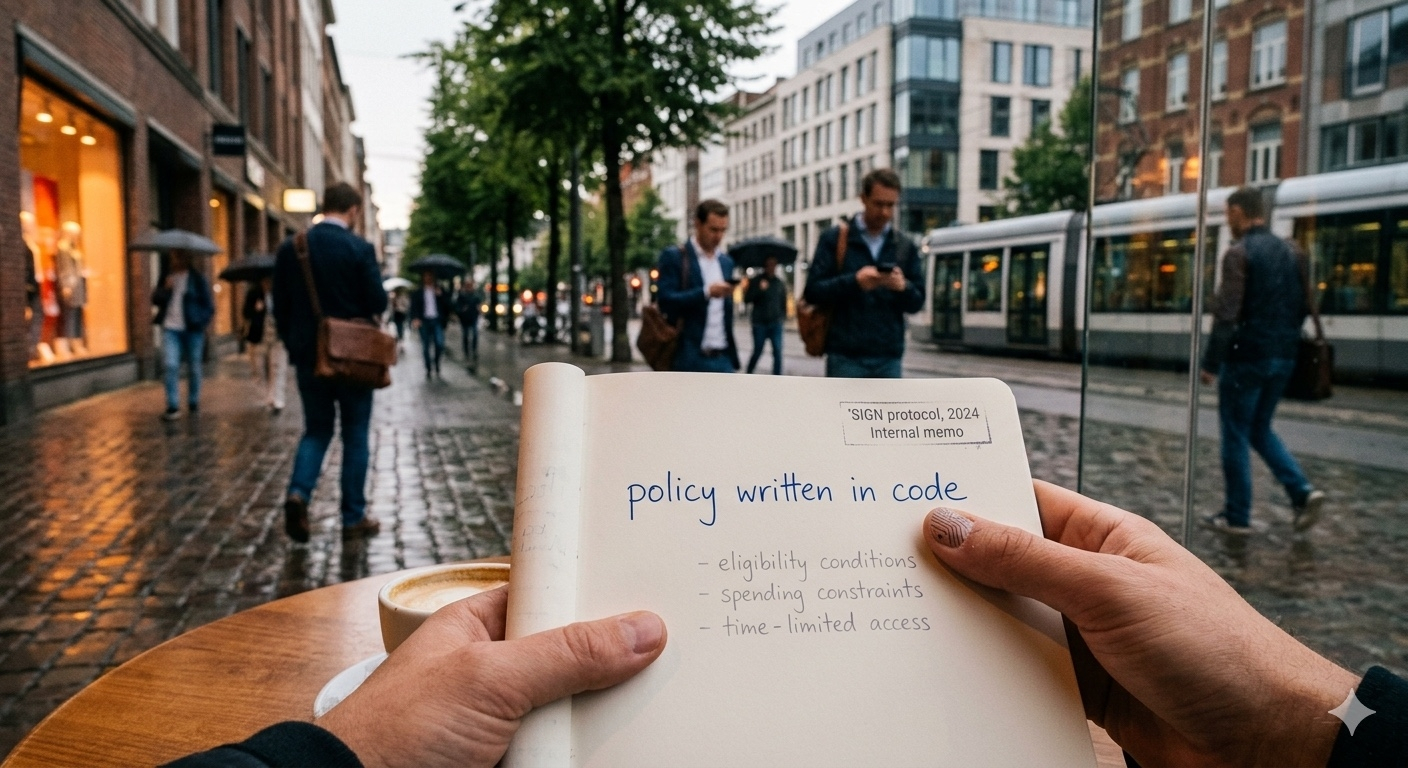 'SIGN protocol, 2024
Internal memo
policy written in code
- eligibility conditions
- spending constraints
- time-limited access